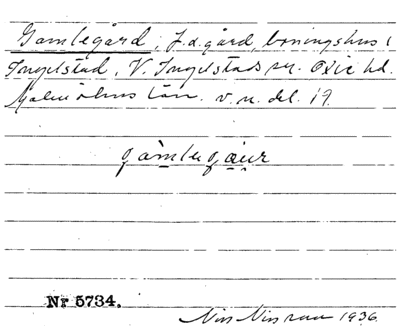 Gamlegård, f.d. gård, boningshus i
Ingelstad, V. Ingelstads sn. Oxie hd.
Malmöhus län. v. n. del. 19.
gàmlegạ̊ur
Nr 5734.
Nils Nilsson 1936